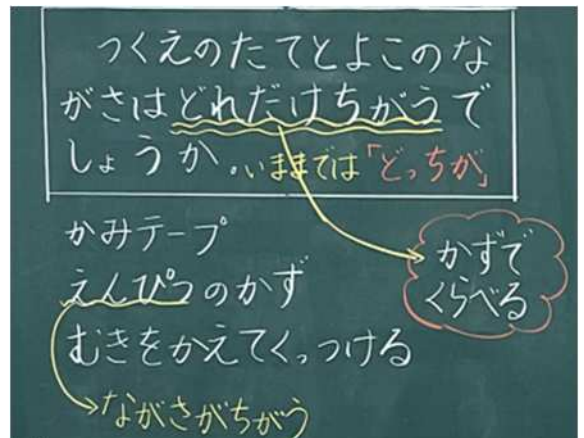 つくえのたてとよこのな
がさはどれだけちがうで
しょうか。いままでは「どっちが」
かずで
くらべる
かみテープ
えんぴつのかず
むきをかえてくっつける
ながさがちがう